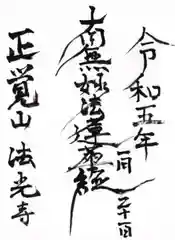 令和五年一月二十一日
南無妙法蓮華経
正覚山 法光寺